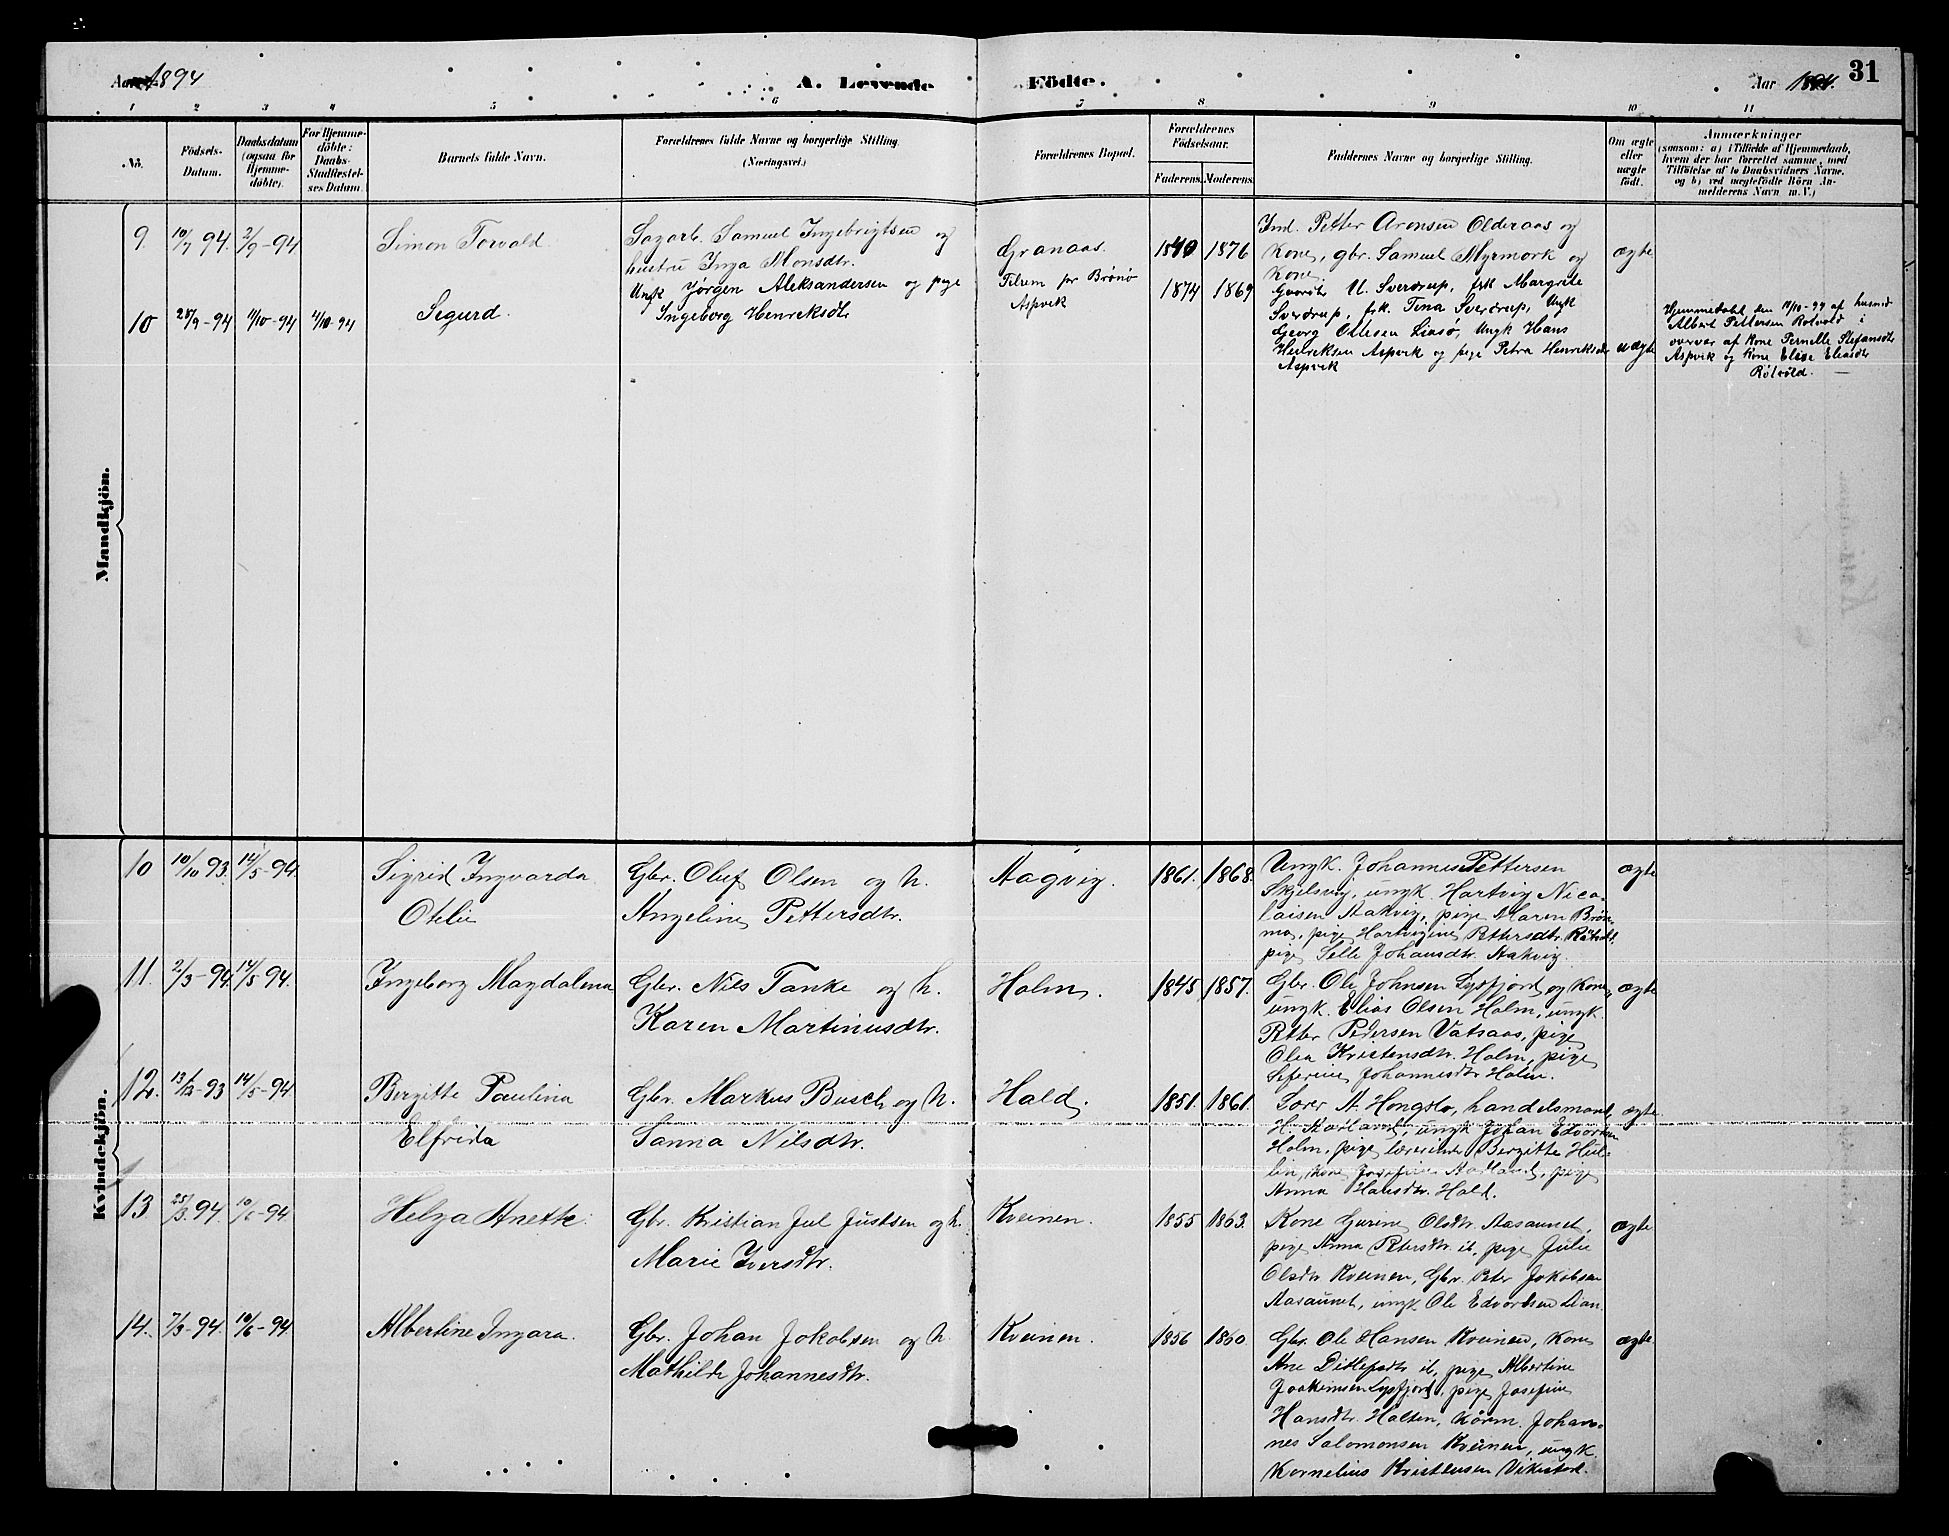 Aar 1894
A. Levende Födte.
Aar 1894.
31
1 2 3 4 5 6 7 8 9 10 11
No.
Födsels-Datum.
Daabsdatum (ogsaa for Hjemme-döbte).
For Hjemme-döbte: Daabs-Stadfæstel-ses Datum.
Barnets fulde Navn.
Forældrenes fulde Navne og borgerlige Stilling. (Næringsvei.)
Forældrenes Bopæl.
Forældrenes Födselsaar.
Faderens. Moderens.
Faddernes Navne og borgerlige Stilling.
Om ægte eller uægte födt.
Anmærkninger
(saasom: a) i Tilfælde af Hjemmedaab, hvem der har forrettet samme, med Tilföielse af to Daabsvidners Navne, og b) ved uægtefödte Börn An-melderens Navn m. V.)
Mandkjön.
9. 10/7 94. 2/9-94
Simon Torvald
Sagarb. Samuel Ingebrigtsen og
hustru Inga Monsdtr.
Granaas.
1840 1876
Ind. Petter Aronsen Olderaas og
Kone, gbr. Samuel Myrmork og
Kone.
ægte
10 28/9-94 11/10-94 11/10-94
Segurd.
Ungk Jørgen Aleksandersen og pige
Ingeborg Henriksdtr
Tilrem pr Brønø
Aspvik
1874 1869
U. Sverdrup, frk Margrete
Sverdrup, frk. Tina Sverdrup, Ungk
Georg Ottesen Linsø, Ungk Hans
Henriksen Aspvik og pige Petra Henriksdtr
Aspvik
uægte
Hjemmedøbt den 11/10-94 af husmd
Albert Pettersen Rotvold i
overvær af Kone Pernelle Stefansdtr
Aspvik og Kone Elise Eliasdtr
Rötvold.
Kvindekjön.
10 10/10 93. 14/5-94
Sigrid Ingvarda
Otelie
Gbr. Oluf Olsen og h.
Angeline Pettersdtr.
Aagvig.
1861. 1868.
Ungk. Johannes Pettersen
Skjelsvig, ungk. Hartvig Nico-
laisen Aakvig, pige Maren Brön-
mo, pige Hartvigine Pettersdtr.
pige Selle Johansdtr. Aakvig.
ægte
11. 2/3-94. 14/5 94.
Ingeborg Magdalena
Gbr. Nils Tanke og h.
Karen Martinusdtr.
Holm.
1845 1857.
Gbr. Ole Johnsen Lysfjord og Kone,
ungk. Elias Olsen Holm, ungk.
Petter Pedersen Vatsaas, pige
Olea Kristensdtr. Holm, pige
Seferine Johannesdtr Holm.
ægte
12. 13/12-93 14/5-94
Bergitte Paulina
Elfrida
Gbr. Markus Busch og h.
Sanna Nilsdtr.
Hald.
1851. 1861.
Lærer A. Hongslo, handelsmand
H. Aarland, ungk Johan Edvardsen
Holm, pige lærerinde Bergitte Hul-
lin, Kone Josefine Aarland, pige
Anna Hansdtr. Hald.
ægte
13. 25/3.94. 10/6-94
Helga Anette.
Gbr. Kristian Jul Justsen og h.
Marie Iversdtr.
Kveinen.
1855 1863.
Kone Gurine Olsdtr. Aasaunet,
pige Anna Petersdtr. ib, pige Julie
Olsdtr Kveinen, Gbr. Peter Jokobsen
Aasaunet, ungk Ole Edvardsen Lian
ægte
14. 7/3-94. 10/6-94
Albertine Ingara.
Gbr. Johan Jokobsen og h.
Mathilde Johannesdtr.
Kveinen.
1856 1860.
Gbr. Ole Hansen Kveinen, Kone
Ane Ditlefsdtr ib, pige Albertine
Joakimsen Lysfjord, pige Josefine
Hansdtr. Holten, Johan-
nes Salomonsen Kveinen, ungk.
Kornelius Kristensen Vikestad.
ægte